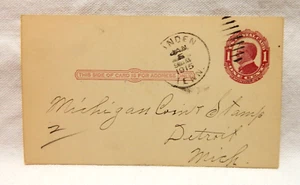 CAMDEN
1915
TENN.
THIS SIDE OF CARD IS FOR ADDRESS
1 1
Michigan Coin & Stamp
Detroit
Mich.